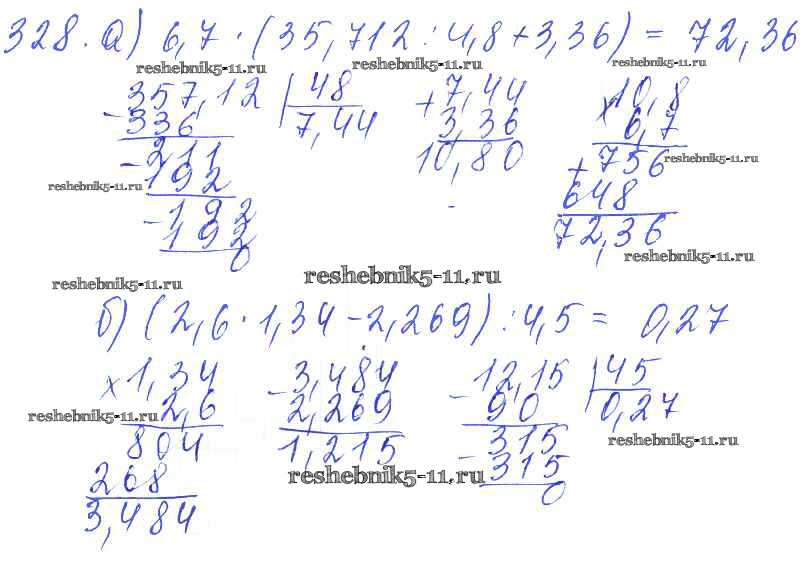 328. а) 6,7 · (35,712 : 4,8 + 3,36) = 72,36
reshebnik5-11.ru reshebnik5-11.ru reshebnik5-11.ru
- 357,12 | 48 + 7,44 × 10,8
336 7,44 3,36 6,7
- 211 10,80 + 756 reshebnik5-11.ru
reshebnik5-11.ru 192 648
- 192 72,36
192 reshebnik5-11.ru
0
reshebnik5-11.ru reshebnik5-11.ru
б) (2,6 · 1,34 - 2,269) : 4,5 = 0,27
× 1,34 - 3,484 - 12,15 | 45
reshebnik5-11.ru 2,6 2,269 90 0,27
804 1,215 - 315 reshebnik5-11.ru
268 reshebnik5-11.ru 315
3,484 0